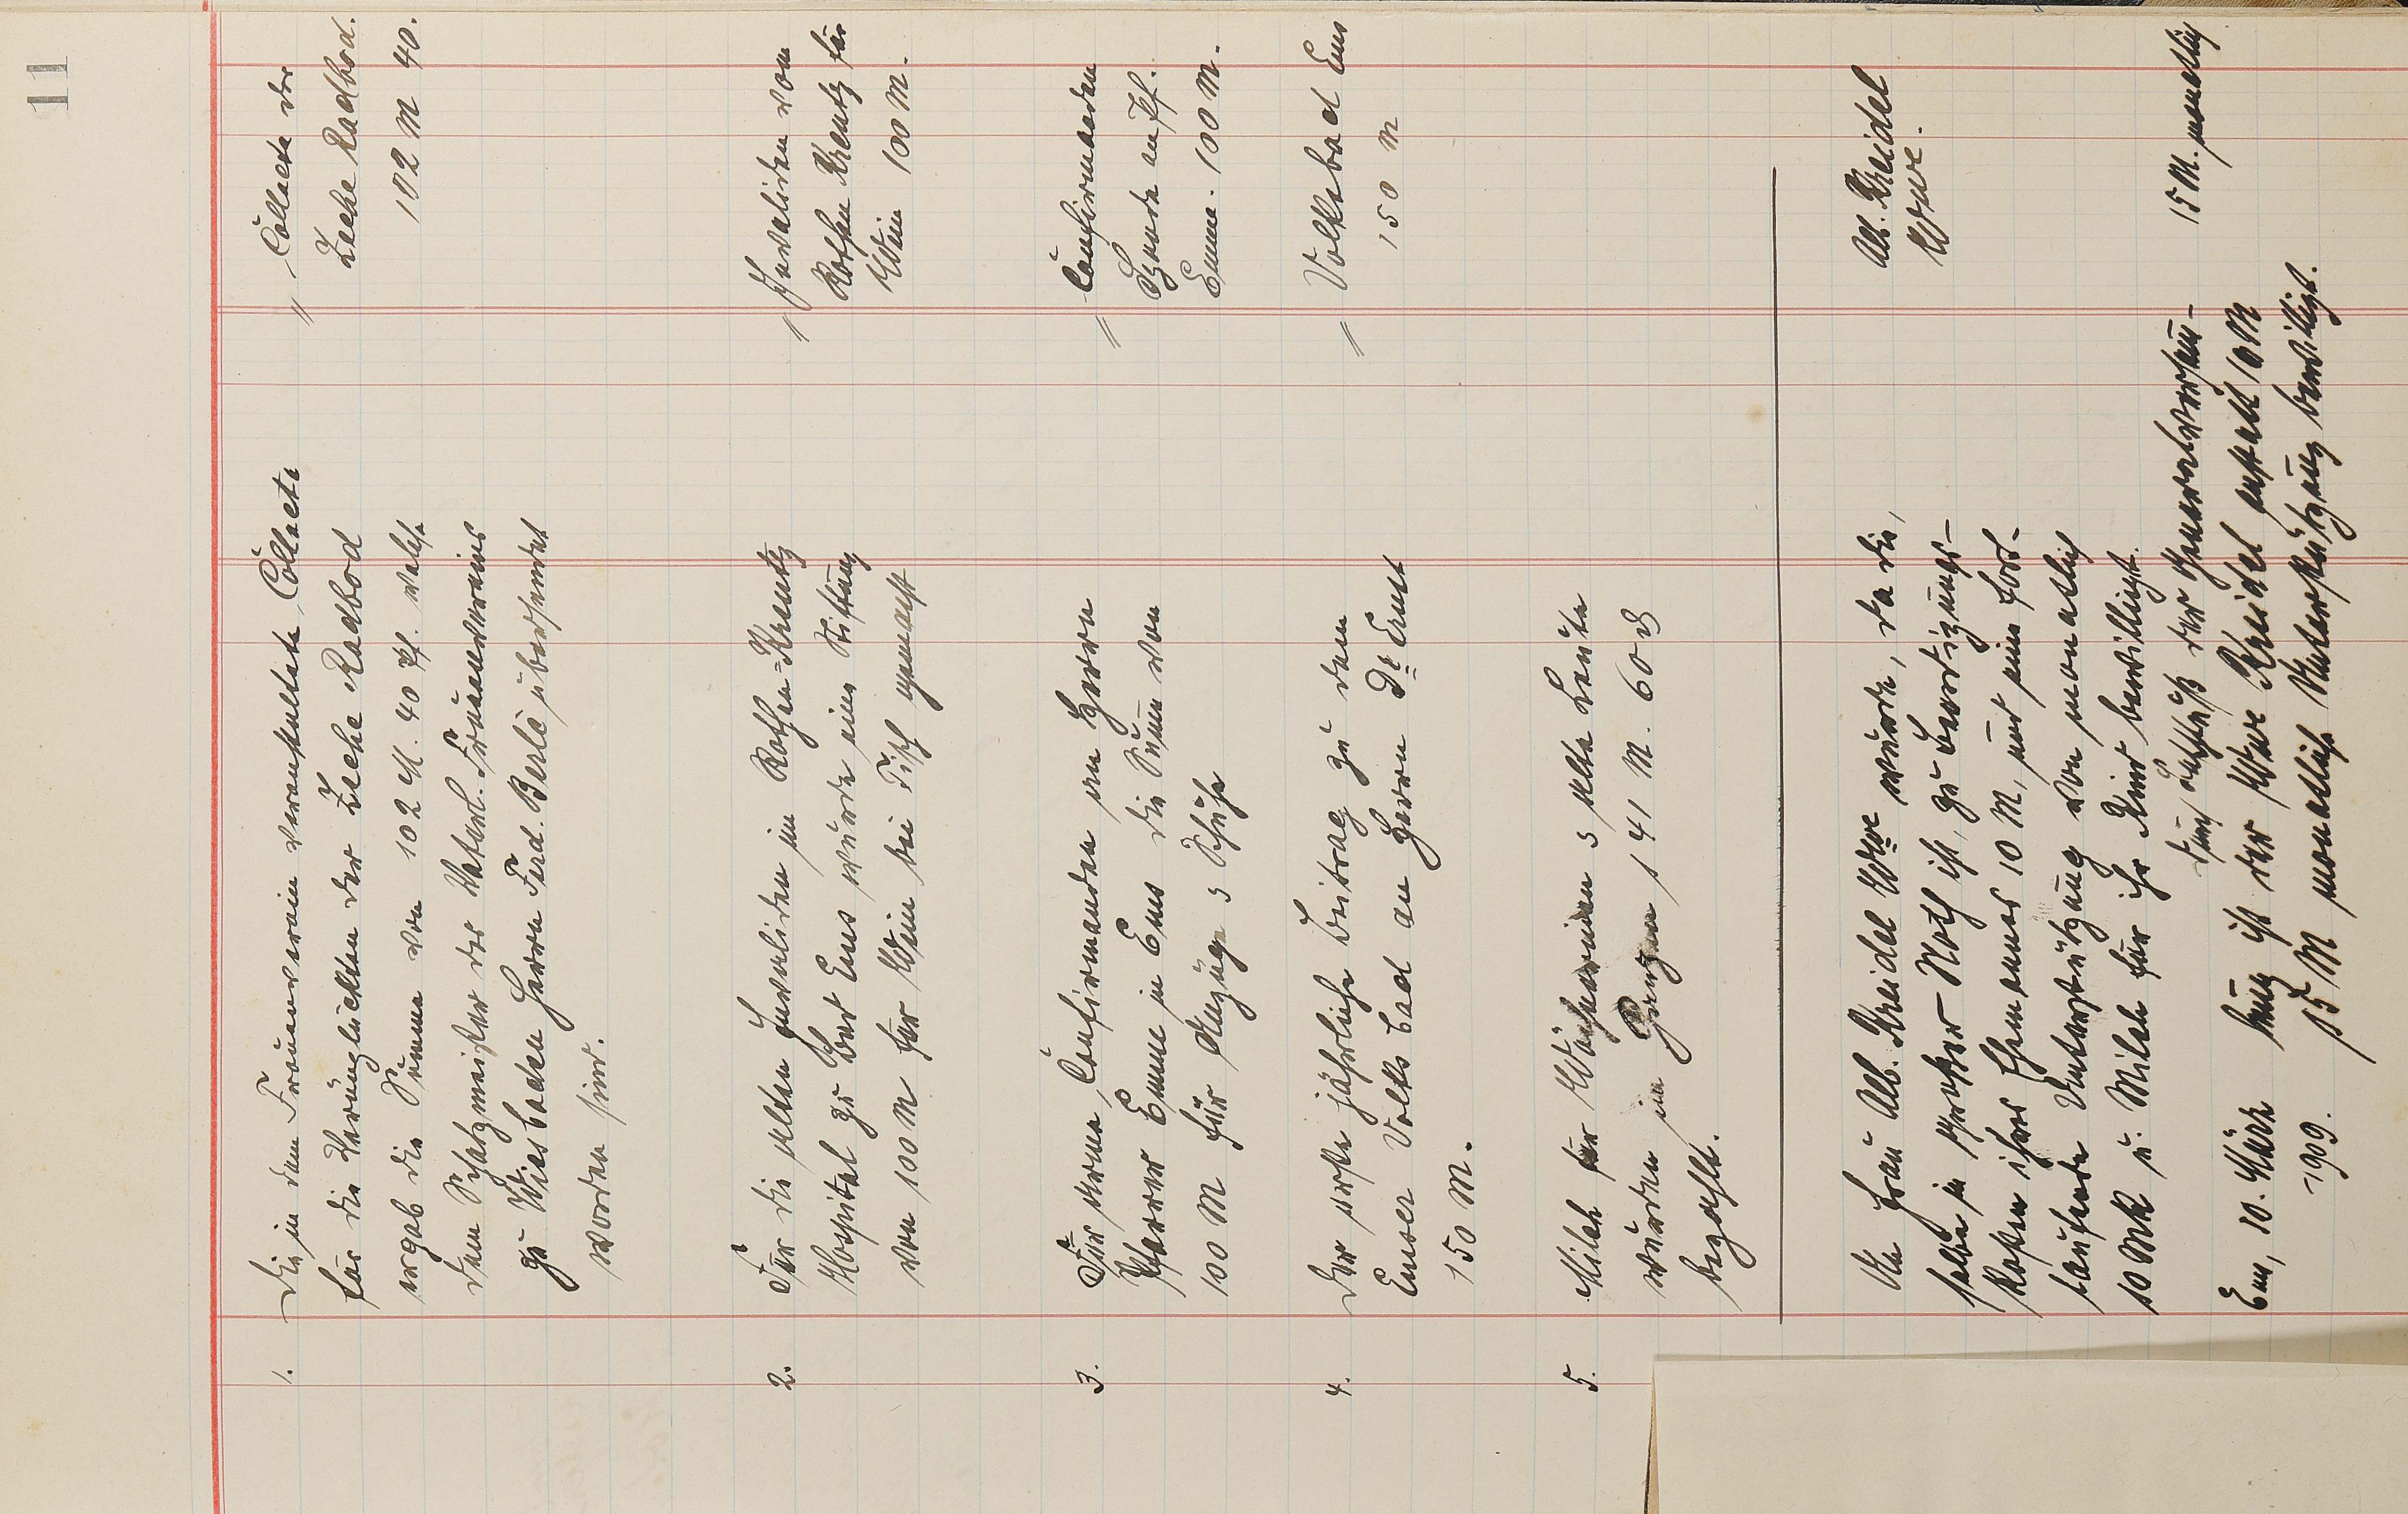 11
1. Die in dem Frauenverein veranstaltete Collecte
für die Verünglückten der Zeche Radbod
ergab die Summe von 102 M. 40 Pf. welche
dem Schatzmeister des Vaterl. Frauenvereins
zu Wiesbaden Herrn Ferd. Berlé übersendet
worden sind.
// Collecte der
Zeche Radbod.
102 M 40.
2. Für die alten Invaliden im Rothen=Kreutz
Hospital zu Bad Ems wurde eine Stiftung
von 100 M für Wein bei Tisch gemacht
// Invaliden vom
Rothen Kreutz für
Wein 100 M.
3. Für arme Confirmanden an Herrn
Pfarrer Emme in Ems die Summe von
100 M für Anzüge & Schuhe
// Confirmanden
Spende an Pf.
Emme. 100 M.
4. Der erste jährliche Beitrag zu dem
Emser Volks bad an Herrn Dr. Ernst
150 M.
// Volksbad Ems
150 M
5. Milch für Wöchnerinen & alte Leute
wurden im Ganzen 141 M. 60 ₰
bezahlt.
An Frau Alb. Kreidel Wwe wurde, da die,
selbe in großer Noth ist, zu Beerdigungs-
kosten ihres Ehemannes 10 M, und eine fort-
laufende Unterstützung von monatlich
10 Mk u. Milch für ihr Kind bewilligt.
Alb. Kreidel
Wwe.
Ems, 10. März
1909.
Durch Beschluß der Generalversam-
lung ist der Wwe Kreidel anstatt 10 M
15 M monatliche Unterstützung bewilligt.
15 M. monatlich